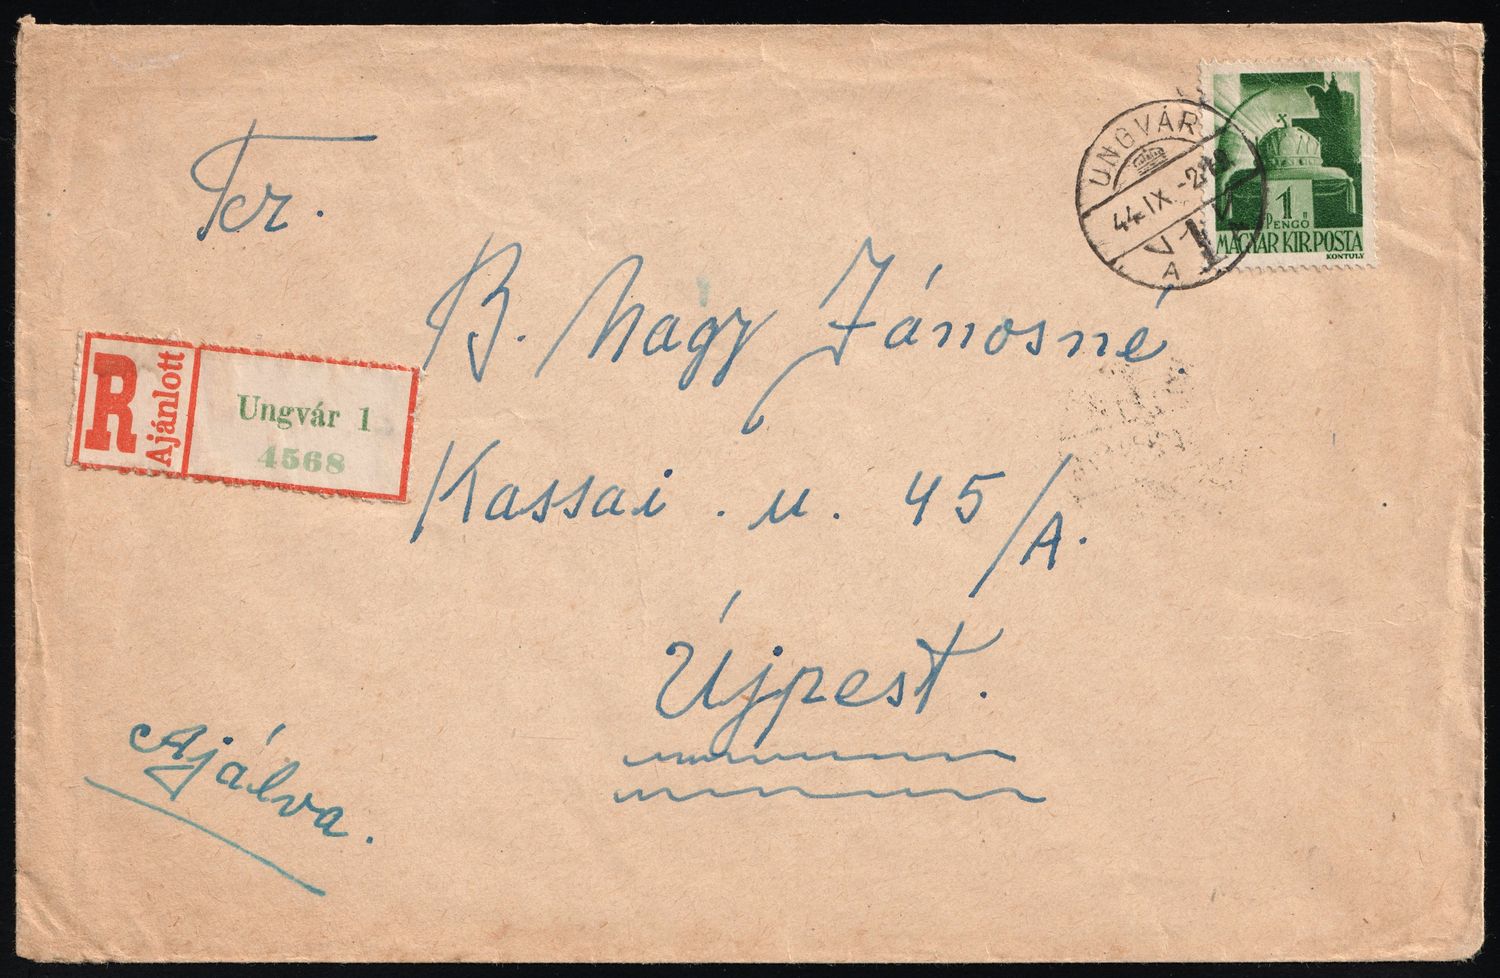 UNGVÁR
44.IX.-2.
A
1
PENGŐ
MAGYAR KIR.POSTA
KONTULY
Tcr.
B. Nagy Jánosné
R
Ajánlott
Ungvár 1
4568
Kassai . u. 45/A.
Újpest.
Ajálva.